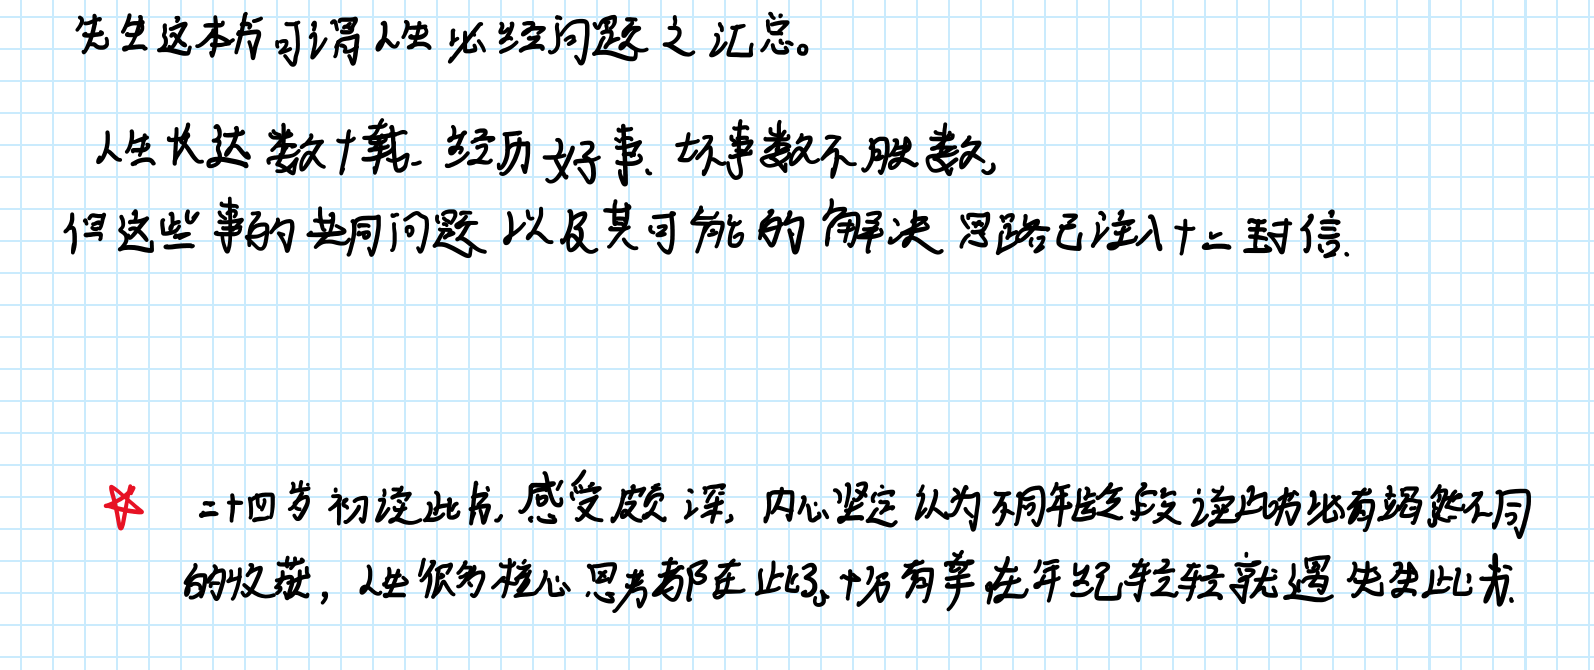 先生这本书可谓人生必经问题之汇总。
人生长达数十载.经历好事、坏事数不胜数,
但这些事的共同问题以及其可能的解决思路已注入十二封信.
二十四岁初读此书,感受颇深,内心坚定认为不同年龄段读此书必有迥然不同
的收获，人生很多核心思考都在此了,十分有幸在年纪轻轻就遇先生此书.